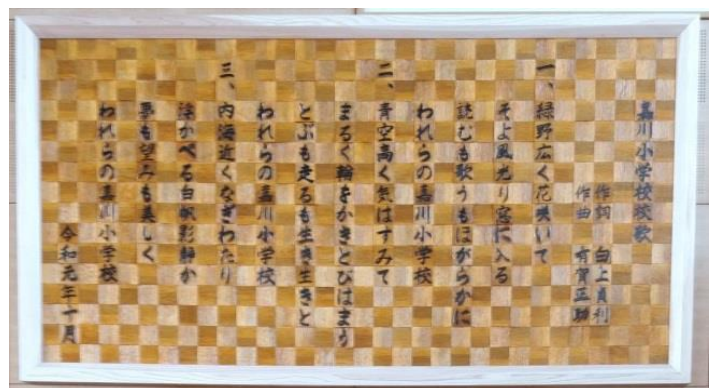 嘉川小学校校歌
作詞 白上貞利
作曲 有賀正助
一、緑野広く花咲いて
そよ風光り窓に入る
読むも歌うもほがらかに
われらの嘉川小学校
二、青空高く気はすみて
まるく輪をかきとびはまり
とぶも走るも生き生きと
われらの嘉川小学校
三、内海近くなぎわたり
浮かべる白帆影静か
夢も望みも美しく
われらの嘉川小学校
令和元年十月